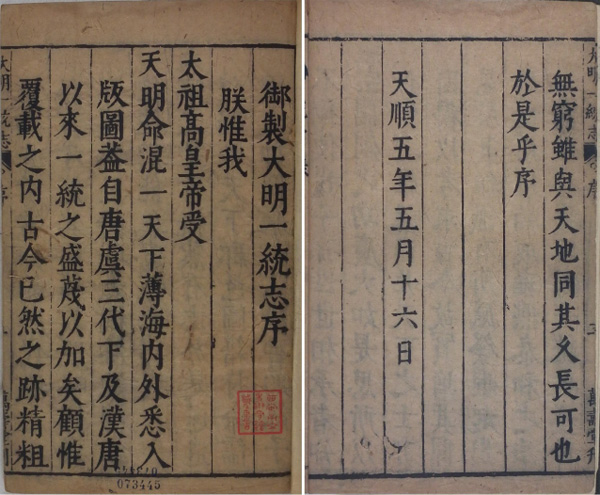 御製大明一統志序
朕惟我
太祖高皇帝受
天明命混一天下薄海内外悉入
版圖葢自唐虞三代下及漢唐
以來一統之盛蔑以加矣顧惟
覆載之内古今已然之跡精粗
大明一統志
序
073445
大明一統志
序
三
萬壽堂刊
無窮雖與天地同其久長可也
於是乎序
天順五年五月十六日